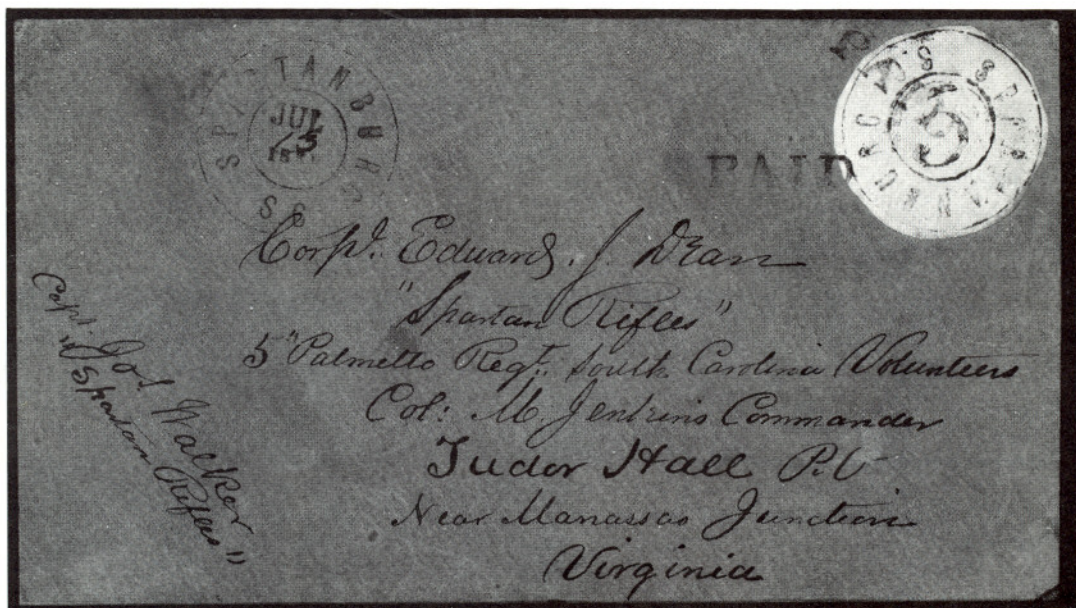 SPARTANBURG S.C.
JUL
25
PAID
SPARTANBURG S.C.
5
PAID
Corpl. Edward. J. Dean
"Spartan Rifles"
5" Palmetto Regt. South Carolina Volunteers
Col: M. Jenkins Commander
Tudor Hall P.O
Near Manassas Junction
Virginia
Capt. Jos. Walker
"Spartan Rifles"